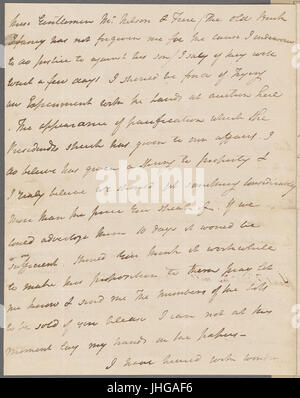 these Gentlemen Mr. Nelson & Free/ the old
has not forgiven me for the cause I endeavour
to do justice to against his son / only if they will
wait a few days I should be fond of trying
an Experiment with the lands at auction here
. The appearance of pacification which the
Presidents speech has given to our affairs I
do believe has given a to property &
I really believe we should get something considerably
more than the price you speak of. If we
could advertise them 10 days it would be
sufficient. Should you think it worth while
to make this proposition to them pray let
me know & send me the numbers of the lots
to be sold if you please I can not at this
moment lay my hands on the papers—
I have heard with
alamy
Image ID: JHGAF6
www.alamy.com